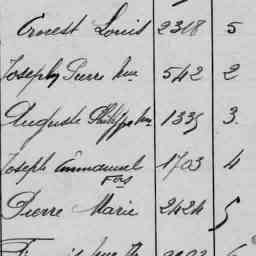 Ernest Louis 2318 5
Joseph Pierre Mie 542 2
Auguste Philippe 1335 3.
Joseph Emmanuel 1703 4
Fçs
Pierre Marie 2424 5